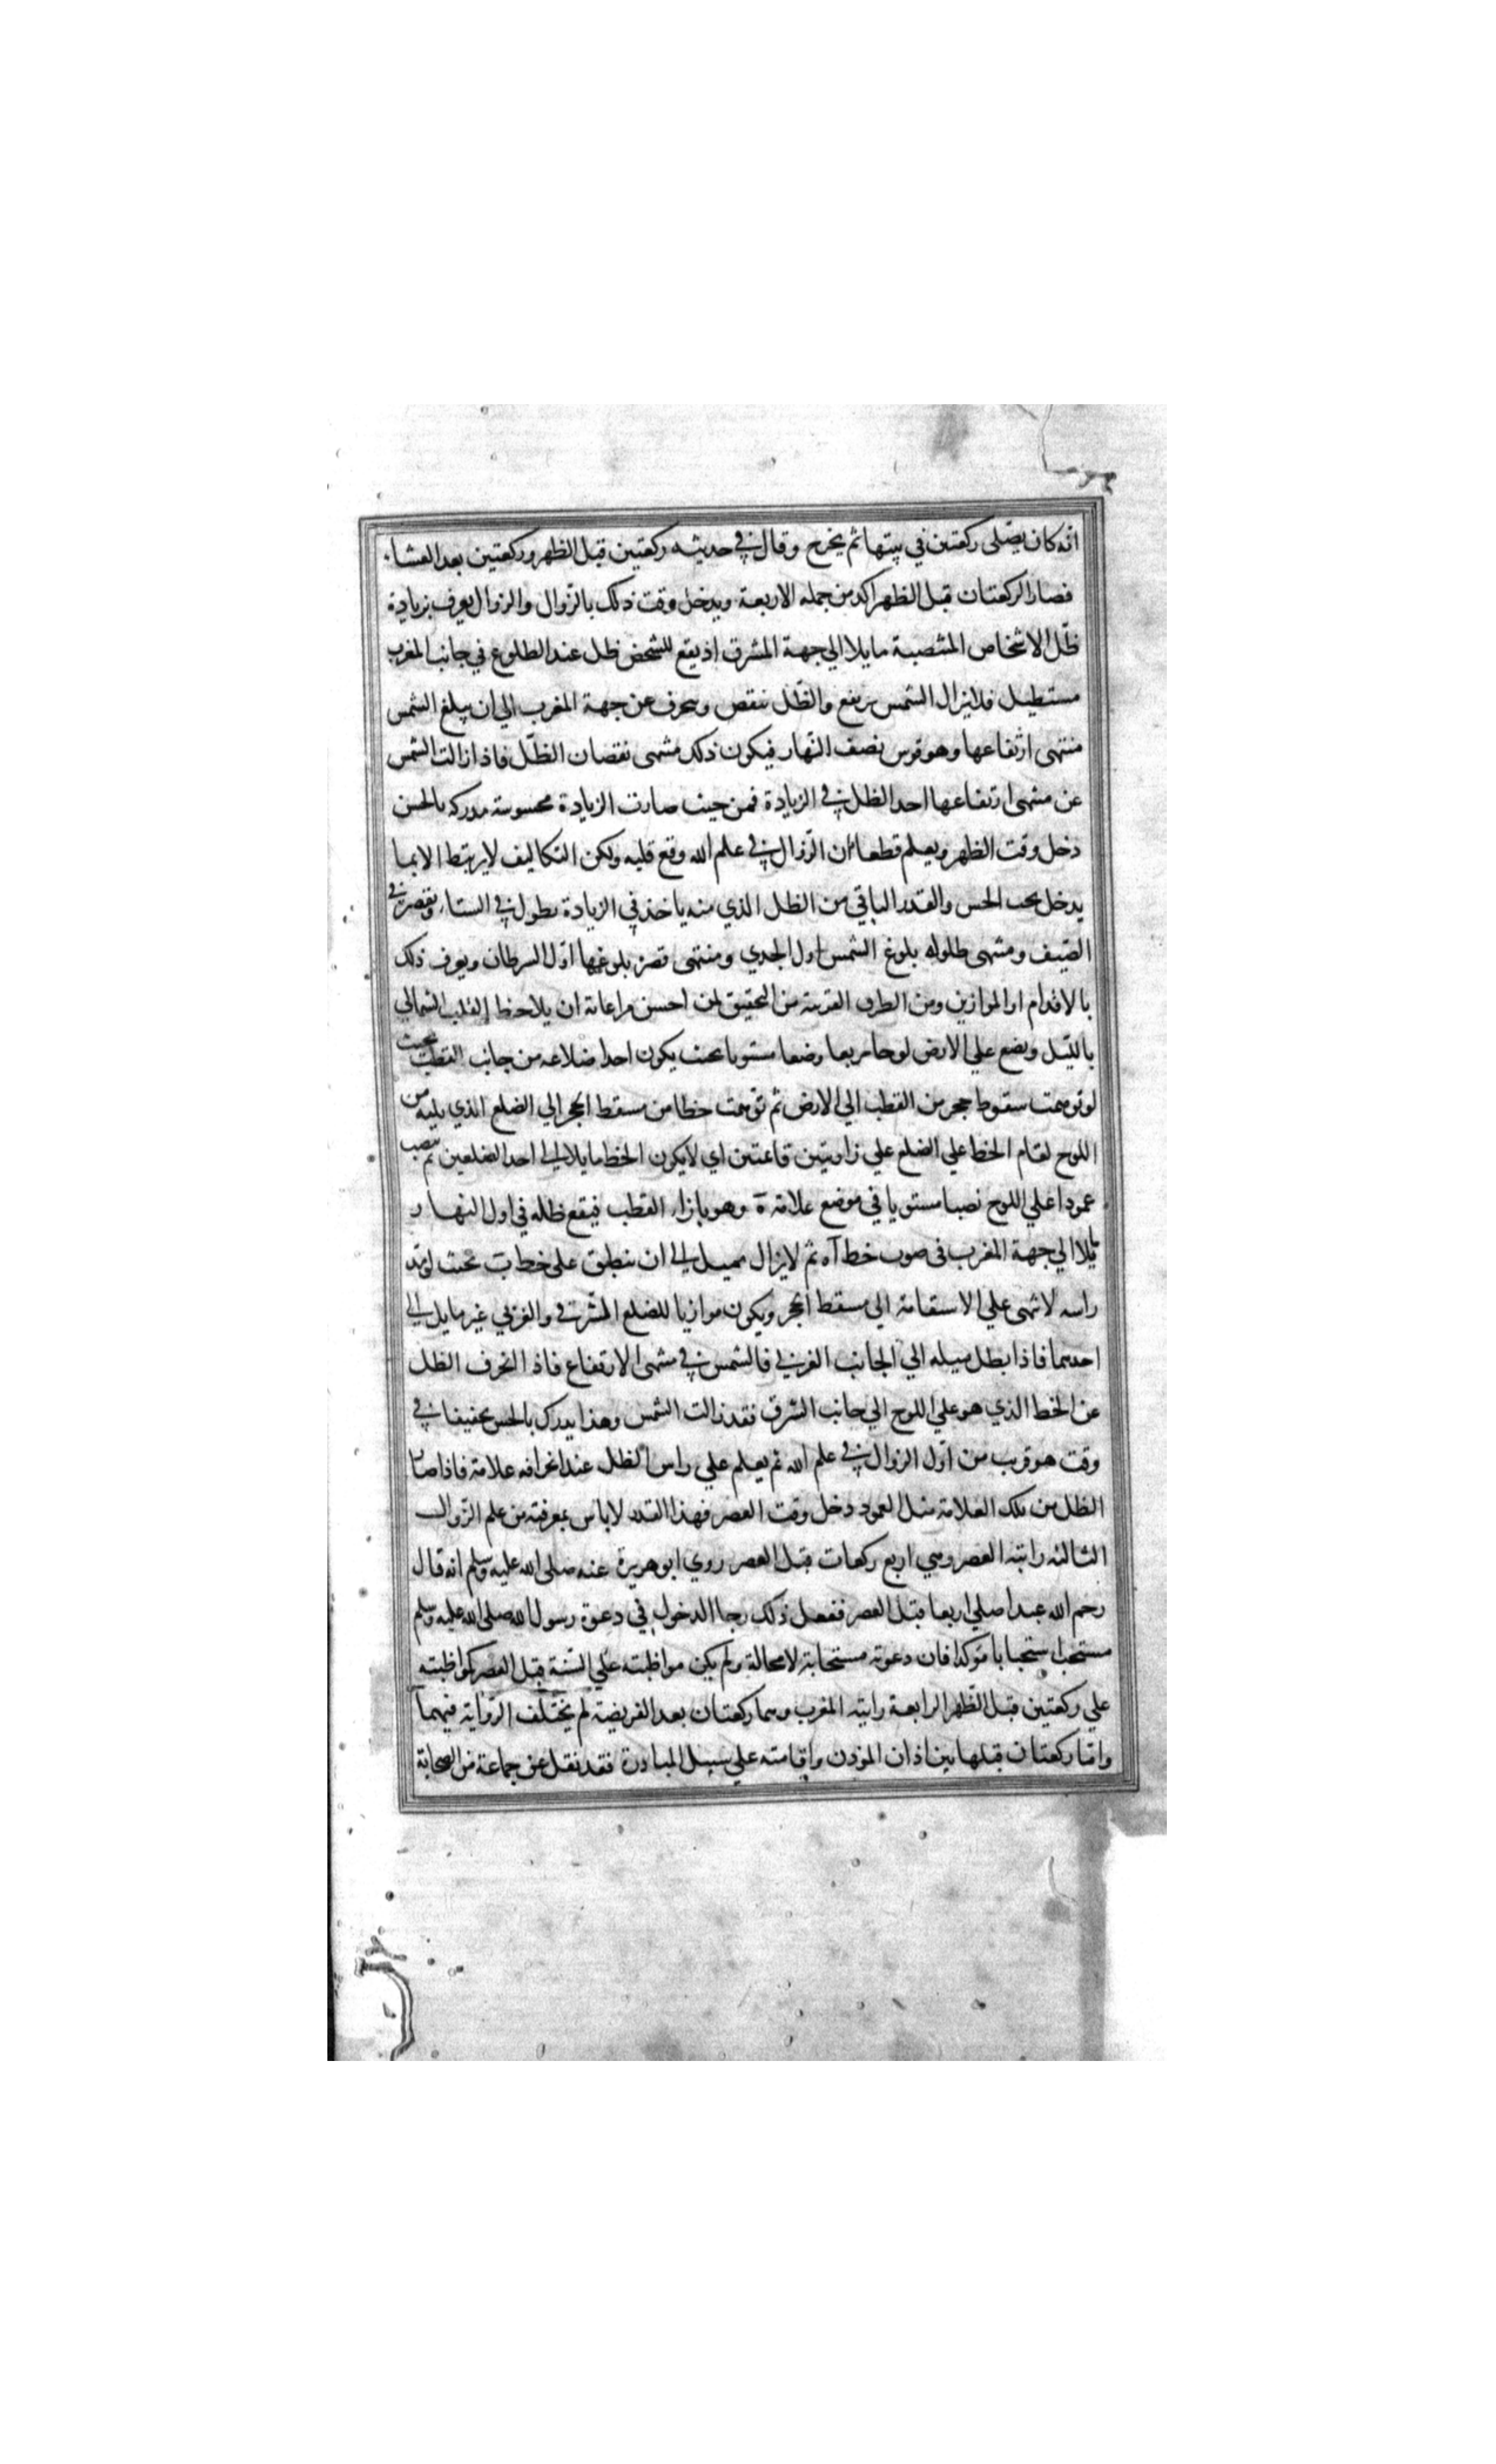 انّه كان يصلّى ركعتين في بيتها ثم يخرج وقال في حديثه ركعتين قبل الظهر وركعتين بعد العشاء
فصار الركعتان قبل الظهر اكد من جملة الاربعة ويدخل وقت ذلك بالزّوال والزوال يعرف بزيادة
ظلّ الاشخاص المنتصبة مايلا الي جهة المشرق اذ يقع للشخص ظل عند الطلوع في جانب المغرب
مستطيل فلا يزال الشمس يرتفع والظّل ينقص وينحرف عن جهة المغرب الي ان يبلغ الشمس
منتهى ارتفاعها وهو قوس نصف النّهار فيكون ذلك منتهى نقصان الظلّ فاذا زالت الشمس
عن منتهى ارتفاعها اخذ الظل في الزيادة فمن حيث صارت الزيادة محسوسة مدركة بالحس
دخل وقت الظهر ويعلم قطعا ان الزّوال في علم الله وقع قبله ولكن التكاليف لا يرتبط الا بما
يدخل تحت الحس والقدر الباقي من الظل الذي منه ياخذ في الزيادة يطول في الشتاء ويقصر في
الصّيف ومنتهى طلوله بلوغ الشمس اول الجدي ومنتهى قصره بلوغها اوّل السرطان ويعرف ذلك
بالاقدام او الموازين ومن الطرق القريبة من التحقيق لمن احسن مراعاته ان يلاحظ القطب الشمالي
بالليل ويضع علي الارض لوحا مربعا وضعا مستويا بحيث يكون احد اضلاعه من جانب القطب بحيث
لو توهمت سقوط حجر من القطب الي الارض ثم توهمت خطا من مسقط الحجر الي الضلع الذي يليه من
اللوح لقام الخط علي الضلع علي زاويتين قائمتين اي لا يكون الخط مايلا الي احد الضلعين ثم ينصب
عمودا علي اللوح نصبا مستويا في موضع علامة ة وهو بازاء القطب فيقع ظله في اول النهار
مايلا الي جهة المغرب في صوب خط آه ثم لا يزال يميل الي ان ينطبق علي خط ب بحيث لو مد
راسه لانتهى علي الاستقامة الي مسقط الحجر ويكون موازيا للضلع المشرقي والغربي غير مايل الي
احدهما فاذا بطل ميله الي الجانب الغربي فالشمس في منتهى الارتفاع فاذا انحرف الظل
عن الخط الذي هو علي اللوح الي جانب الشرق فقد زالت الشمس وهذا يدرك بالحس تحقيقا في
وقت هو قريب من اوّل الزوال في علم الله ثم يعلم علي راس الظل عند انحرافه علامة فاذا صار
الظل من تلك العلامة مثل العمود دخل وقت العصر فهذا القدر لا باس بمعرفته من علم الزّوال
الثالثه راتبة العصر وهي اربع ركعات قبل العصر روي ابو هريرة عنه صلى الله عليه وسلم انه قال
رحم الله عبدا صلي اربعا قبل العصر ففعل ذلك رجا الدخول في دعوة رسول الله صلى الله عليه وسلم
مستحب استحبابا مؤكدا فان دعوته مستجابة لا محالة ولم يكن مواظبته علي السّنة قبل العصر كمواظبته
علي ركعتين قبل الظهر الرابعة راتبة المغرب وهما ركعتان بعد الفريضة لم يختلف الرّواية فيهما
وامّا ركعتان قبلها بين اذان المؤذن واقامته علي سبيل المبادرة فقد نقل عن جماعة من الصحابة